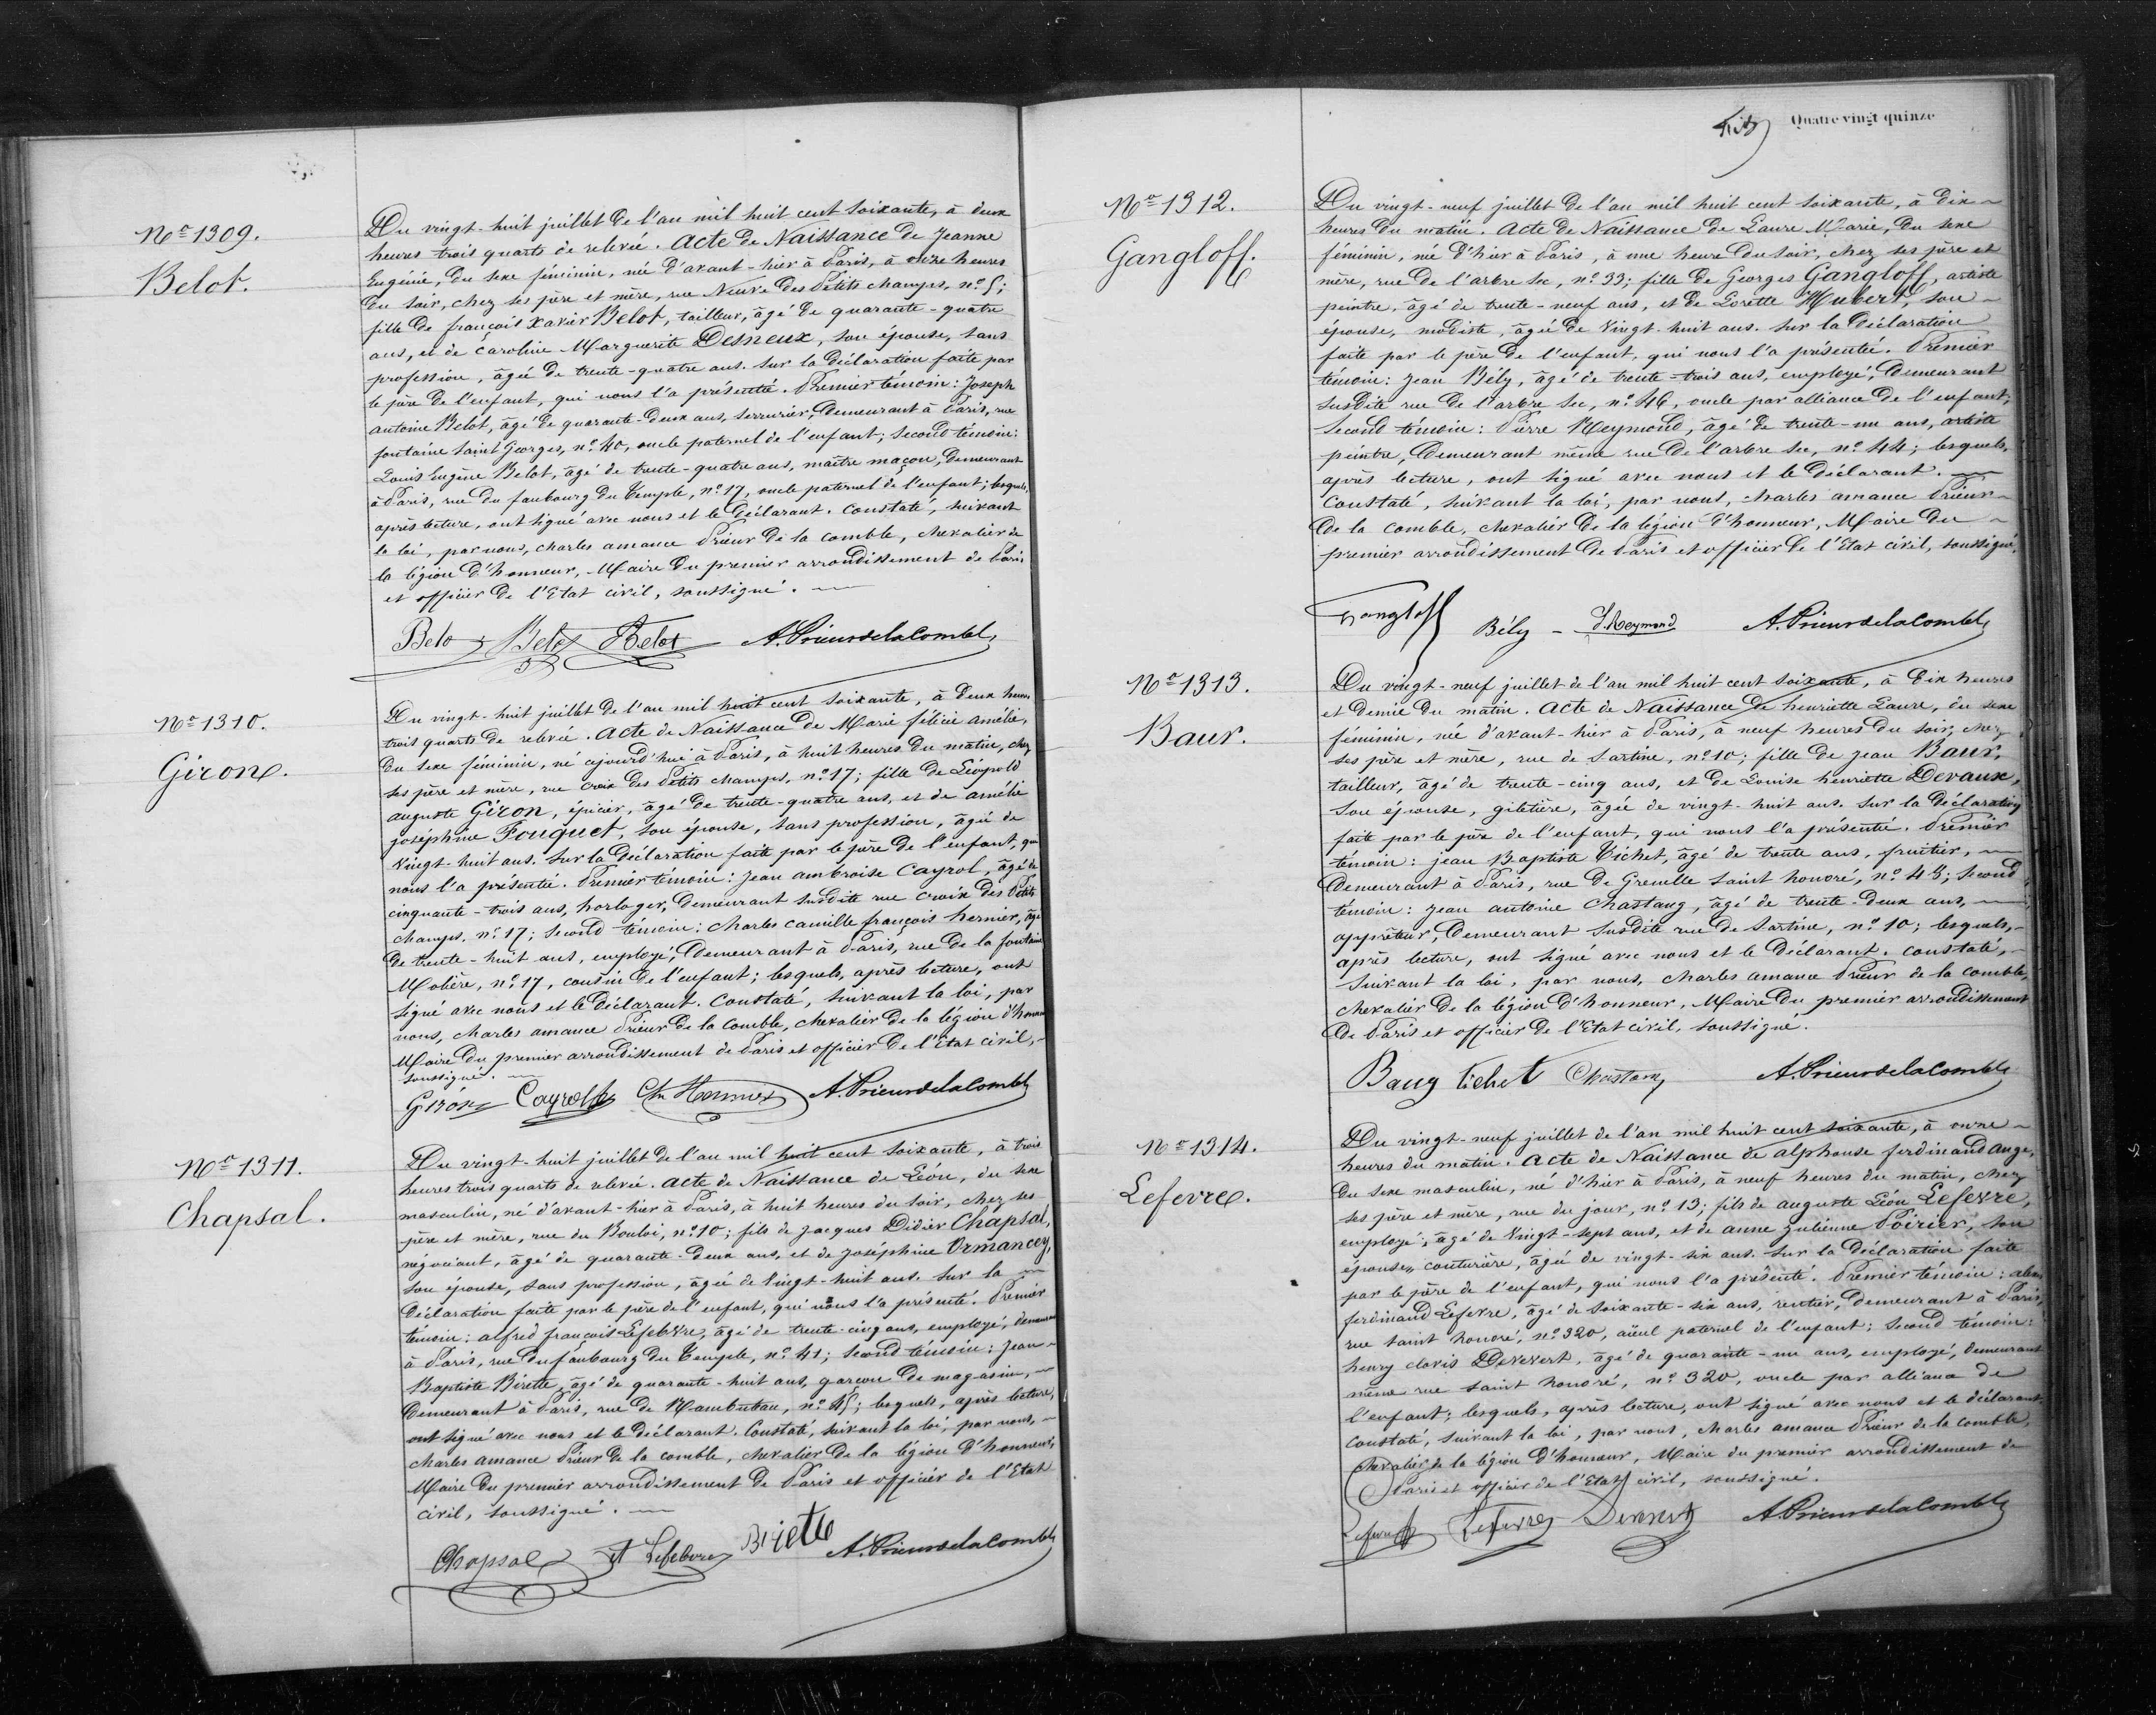 No 1309.
Belot.
Du vingt-huit juillet de l'an mil huit cent soixante, à deux
heures trois quarts de relevée. Acte de Naissance de Jeanne
Eugénie, du sexe féminin, née d'avant-hier à Paris, à onze heures
du soir, chez ses père et mère, rue Neuve des Petits champs, no 5;
fille de françois xavier Belot, tailleur, âgé de quarante-quatre
ans, et de Caroline Marguerite Desneux, son épouse, sans
profession, âgée de trente-quatre ans. Sur la déclaration faite par
le père de l'enfant, qui nous l'a présenté. Premier témoin: Joseph
antoine Belot, âgé de quarante-deux ans, serrurier, demeurant à Paris, rue
fontaine Saint Georges, no 40, oncle paternel de l'enfant; second témoin:
Louis Eugène Belot, âgé de trente-quatre ans, maître maçon, demeurant
à Paris, rue du faubourg du Temple, no 17, oncle paternel de l'enfant; lesquels,
après lecture, ont signé avec nous et le déclarant. Constaté, suivant
la loi, par nous, charles amance Prieur de la comble, chevalier de
la légion d'honneur, Maire du premier arrondissement de Paris
et officier de l'Etat civil, soussigné.
Belot Belot Belot A. Prieurdelacomble
No 1310.
Giron.
Du vingt-huit juillet de l'an mil huit cent soixante, à deux heures
trois quarts de relevée. Acte de Naissance de Marie félicie amélie,
du sexe féminin, né aujourd'hui à Paris, à huit heures du matin, chez
ses père et mère, rue croix des Petits champs, no 17; fille de Léopold
auguste Giron, épicier, âgé de trente-quatre ans, et de amélie
joséphine Fouquet, son épouse, sans profession, âgée de
vingt-huit ans. Sur la déclaration faite par le père de l'enfant, qui
nous l'a présenté. Premier témoin: Jean ambroise Cayrol, âgé de
cinquante-trois ans, horloger, demeurant susdite rue croix des Petits
champs, no 17; second témoin: charles camille françois hernier, âgé
de trente-huit ans, employé, demeurant à Paris, rue de la fontaine
Molière, no 17, cousin de l'enfant; lesquels, après lecture, ont
signé avec nous et le déclarant. Constaté, suivant la loi, par
nous, charles amance Prieur de la comble, chevalier de la légion d'honneur
Maire du premier arrondissement de Paris et officier de l'Etat civil,
soussigné.
Giron Cayrol Ch Hernier A. Prieurdelacomble
No 1311.
Chapsal.
Du vingt-huit juillet de l'an mil huit cent soixante, à trois
heures trois quarts de relevée. Acte de Naissance de Léon, du sexe
masculin, né d'avant-hier à Paris, à huit heures du soir, chez ses
père et mère, rue du Bouloi, no 10; fils de Jacques Didier Chapsal,
négociant, âgé de quarante-deux ans, et de Joséphine Ormancey,
son épouse, sans profession, âgée de vingt-huit ans. Sur la
déclaration faite par le père de l'enfant, qui nous l'a présenté. Premier
témoin: alfred françois Lefebvre, âgé de trente-cinq ans, employé, demeurant
à Paris, rue du faubourg du Temple, no 41; second témoin: Jean
Baptiste Birette, âgé de quarante-huit ans, garçon de magasin,
demeurant à Paris, rue de Rambuteau, no 45; lesquels, après lecture,
ont signé avec nous et le déclarant. Constaté, suivant la loi, par nous,
charles amance Prieur de la comble, chevalier de la légion d'honneur,
Maire du premier arrondissement de Paris et officier de l'Etat
civil, soussigné.
Chapsal A Lefebvre Birette A. Prieurdelacomble
Quatre vingt quinze
No 1312.
Gangloff.
Du vingt-neuf juillet de l'an mil huit cent soixante, à dix
heures du matin. Acte de Naissance de Laure Marie, du sexe
féminin, né d'hier à Paris, à une heure du soir, chez ses père et
mère, rue de l'arbre sec, no 33; fille de Georges Gangloff, artiste
peintre, âgé de trente-neuf ans, et de Lorette Hubert, son
épouse, modiste, âgée de vingt-huit ans. Sur la déclaration
faite par le père de l'enfant, qui nous l'a présenté. Premier
témoin: Jean Bély, âgé de trente-trois ans, employé, demeurant
susdite rue de l'arbre sec, no 46, oncle par alliance de l'enfant;
Second témoin: Pierre Reymond, âgé de trente-un ans, artiste
peintre, demeurant même rue de l'arbre sec, no 44; lesquels,
après lecture, ont signé avec nous et le déclarant.
Constaté, suivant la loi, par nous, charles amance Prieur
de la comble, chevalier de la légion d'honneur, Maire du
premier arrondissement de Paris et officier de l'Etat civil, soussigné.
Gangloff Bély J. Reymond A. Prieurdelacomble
No 1313.
Baur.
Du vingt-neuf juillet de l'an mil huit cent soixante, à dix heures
et demie du matin. Acte de Naissance de henriette Laure, du sexe
féminin, né d'avant-hier à Paris, à neuf heures du soir, chez
ses père et mère, rue de Sartine, no 10; fille de Jean Baur,
tailleur, âgé de trente-cinq ans, et de Louise henriette Devaux,
son épouse, giletière, âgée de vingt-huit ans. Sur la déclaration
faite par le père de l'enfant, qui nous l'a présenté. Premier
témoin: jean Baptiste Tichet, âgé de trente ans, fruitier,
demeurant à Paris, rue de Grenelle Saint honoré, no 43; second
témoin: Jean antoine Chastang, âgé de trente-deux ans,
apprêteur, demeurant susdite rue de Sartine, no 10; lesquels,
après lecture, ont signé avec nous et le déclarant. Constaté,
suivant la loi, par nous, charles amance Prieur de la comble,
chevalier de la légion d'honneur, Maire du premier arrondissement
de Paris et officier de l'Etat civil, soussigné.
Baur Tichet Chastang A. Prieurdelacomble
No 1314.
Lefevre.
Du vingt-neuf juillet de l'an mil huit cent soixante, à onze
heures du matin. Acte de Naissance de alphonse ferdinand ange,
du sexe masculin, né d'hier à Paris, à neuf heures du matin, chez
ses père et mère, rue du jour, no 13; fils de auguste Léon Lefevre,
employé, âgé de vingt-sept ans, et de anne julienne Poirier, son
épouse, couturière, âgée de vingt-six ans. Sur la déclaration faite
par le père de l'enfant, qui nous l'a présenté. Premier témoin:
ferdinand Lefevre, âgé de soixante-six ans, rentier, demeurant à Paris,
rue Saint honoré, no 320, aïeul paternel de l'enfant; Second témoin:
henry clovis Devevert, âgé de quarante-un ans, employé, demeurant
même rue Saint honoré, no 320, oncle par alliance de
l'enfant; lesquels, après lecture, ont signé avec nous et le déclarant.
Constaté, suivant la loi, par nous, charles amance Prieur de la comble,
Chevalier de la légion d'honneur, Maire du premier arrondissement de
Paris et officier de l'Etat civil, soussigné.
Lefevre Lefevre Devevert A. Prieurdelacomble